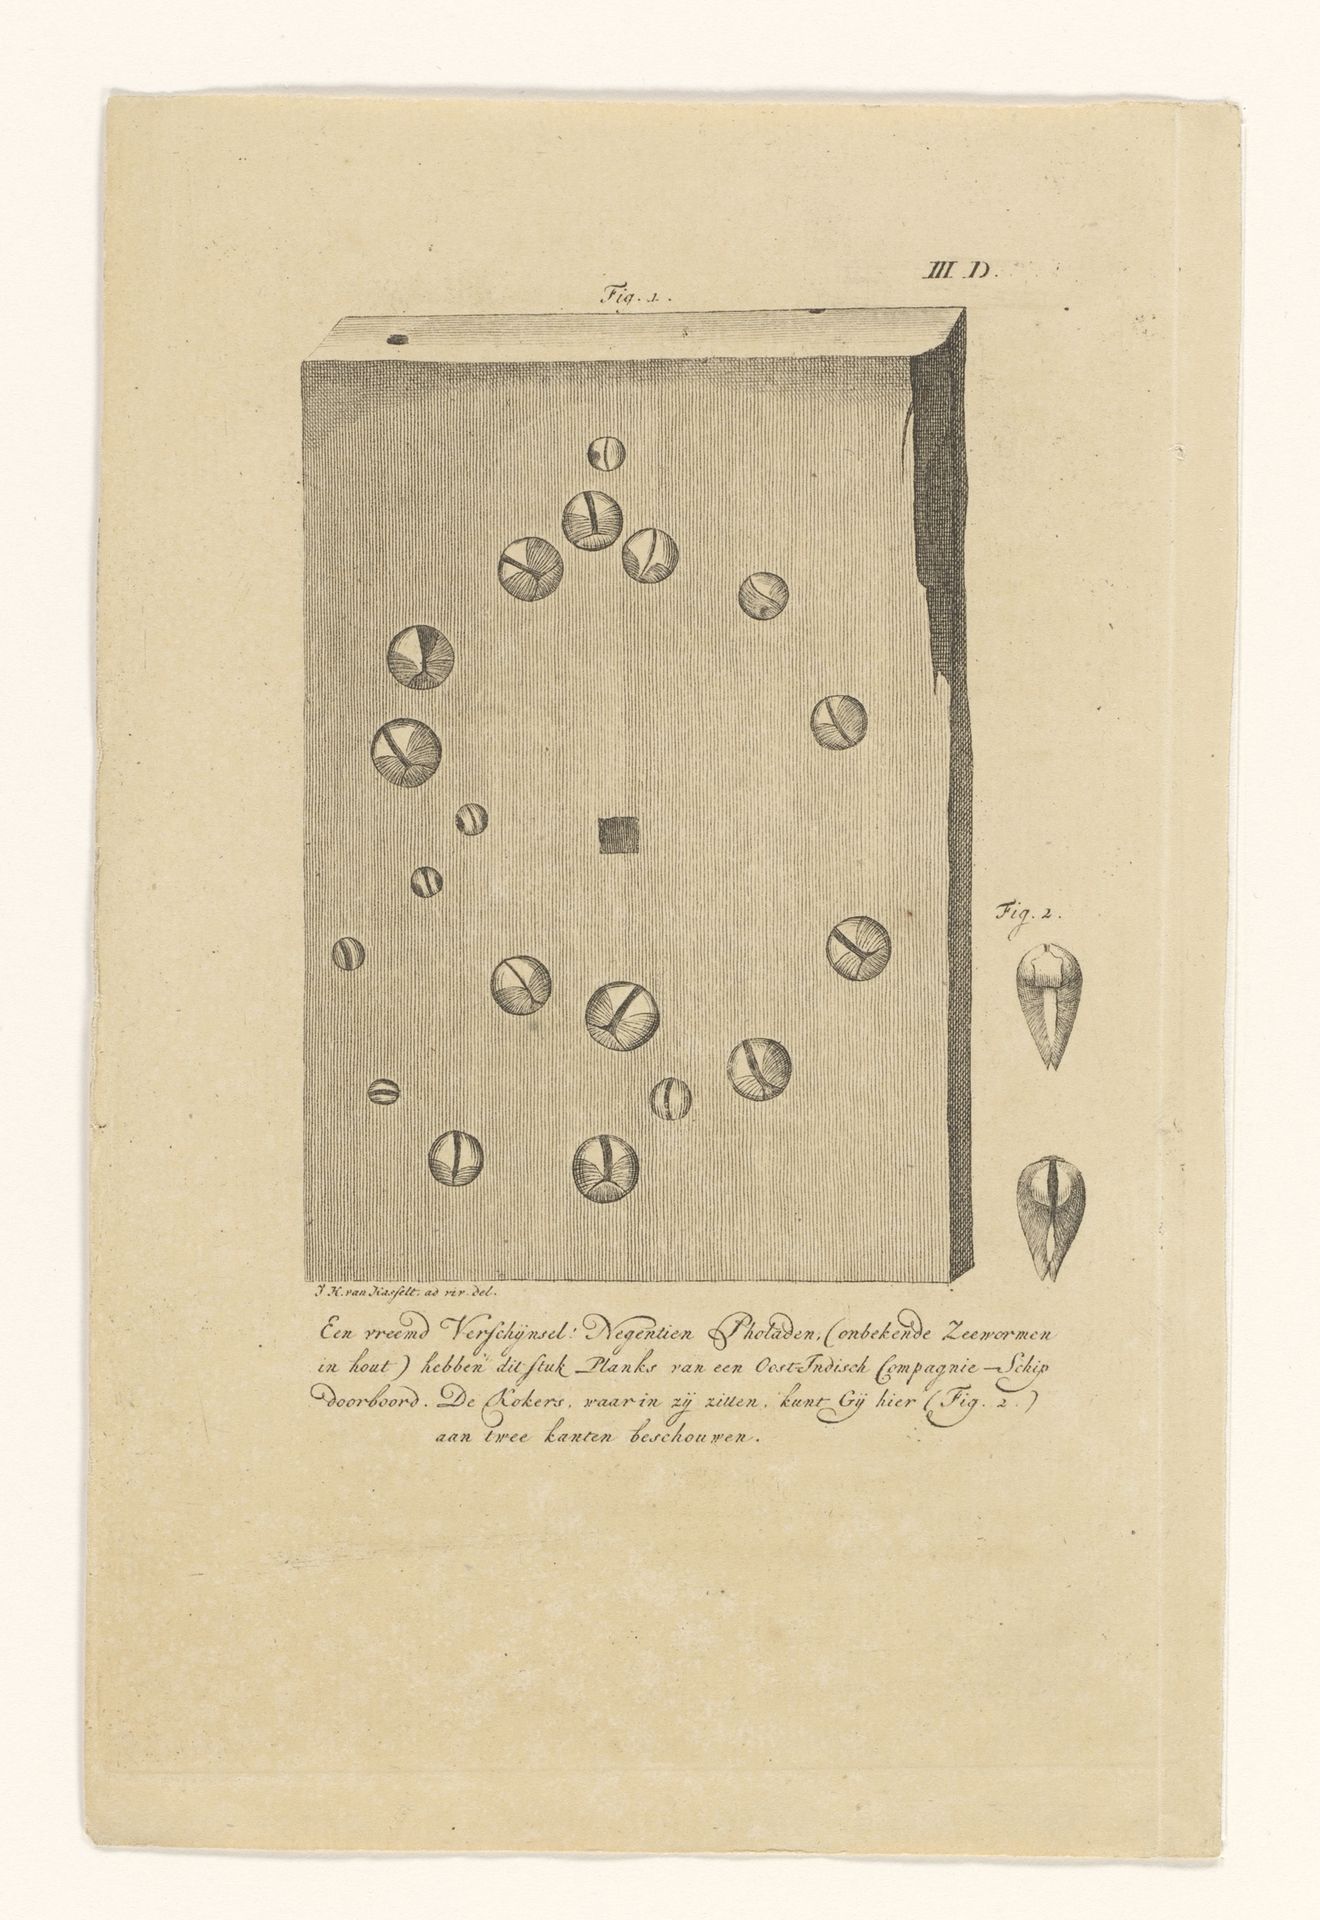 III D.
Fig. 1.
Fig. 2.
J H. van Hasselt. ad viv. del.
Een vreemd Verschÿnsel: Negentien Pholaden, (onbekende Zeewormen
in hout) hebben dit stuk Planks van een Oost-Indisch Compagnie-Schip
doorboord. De Kokers, waar in zÿ zitten, kunt Gÿ hier (Fig. 2.)
aan twee kanten beschouwen.